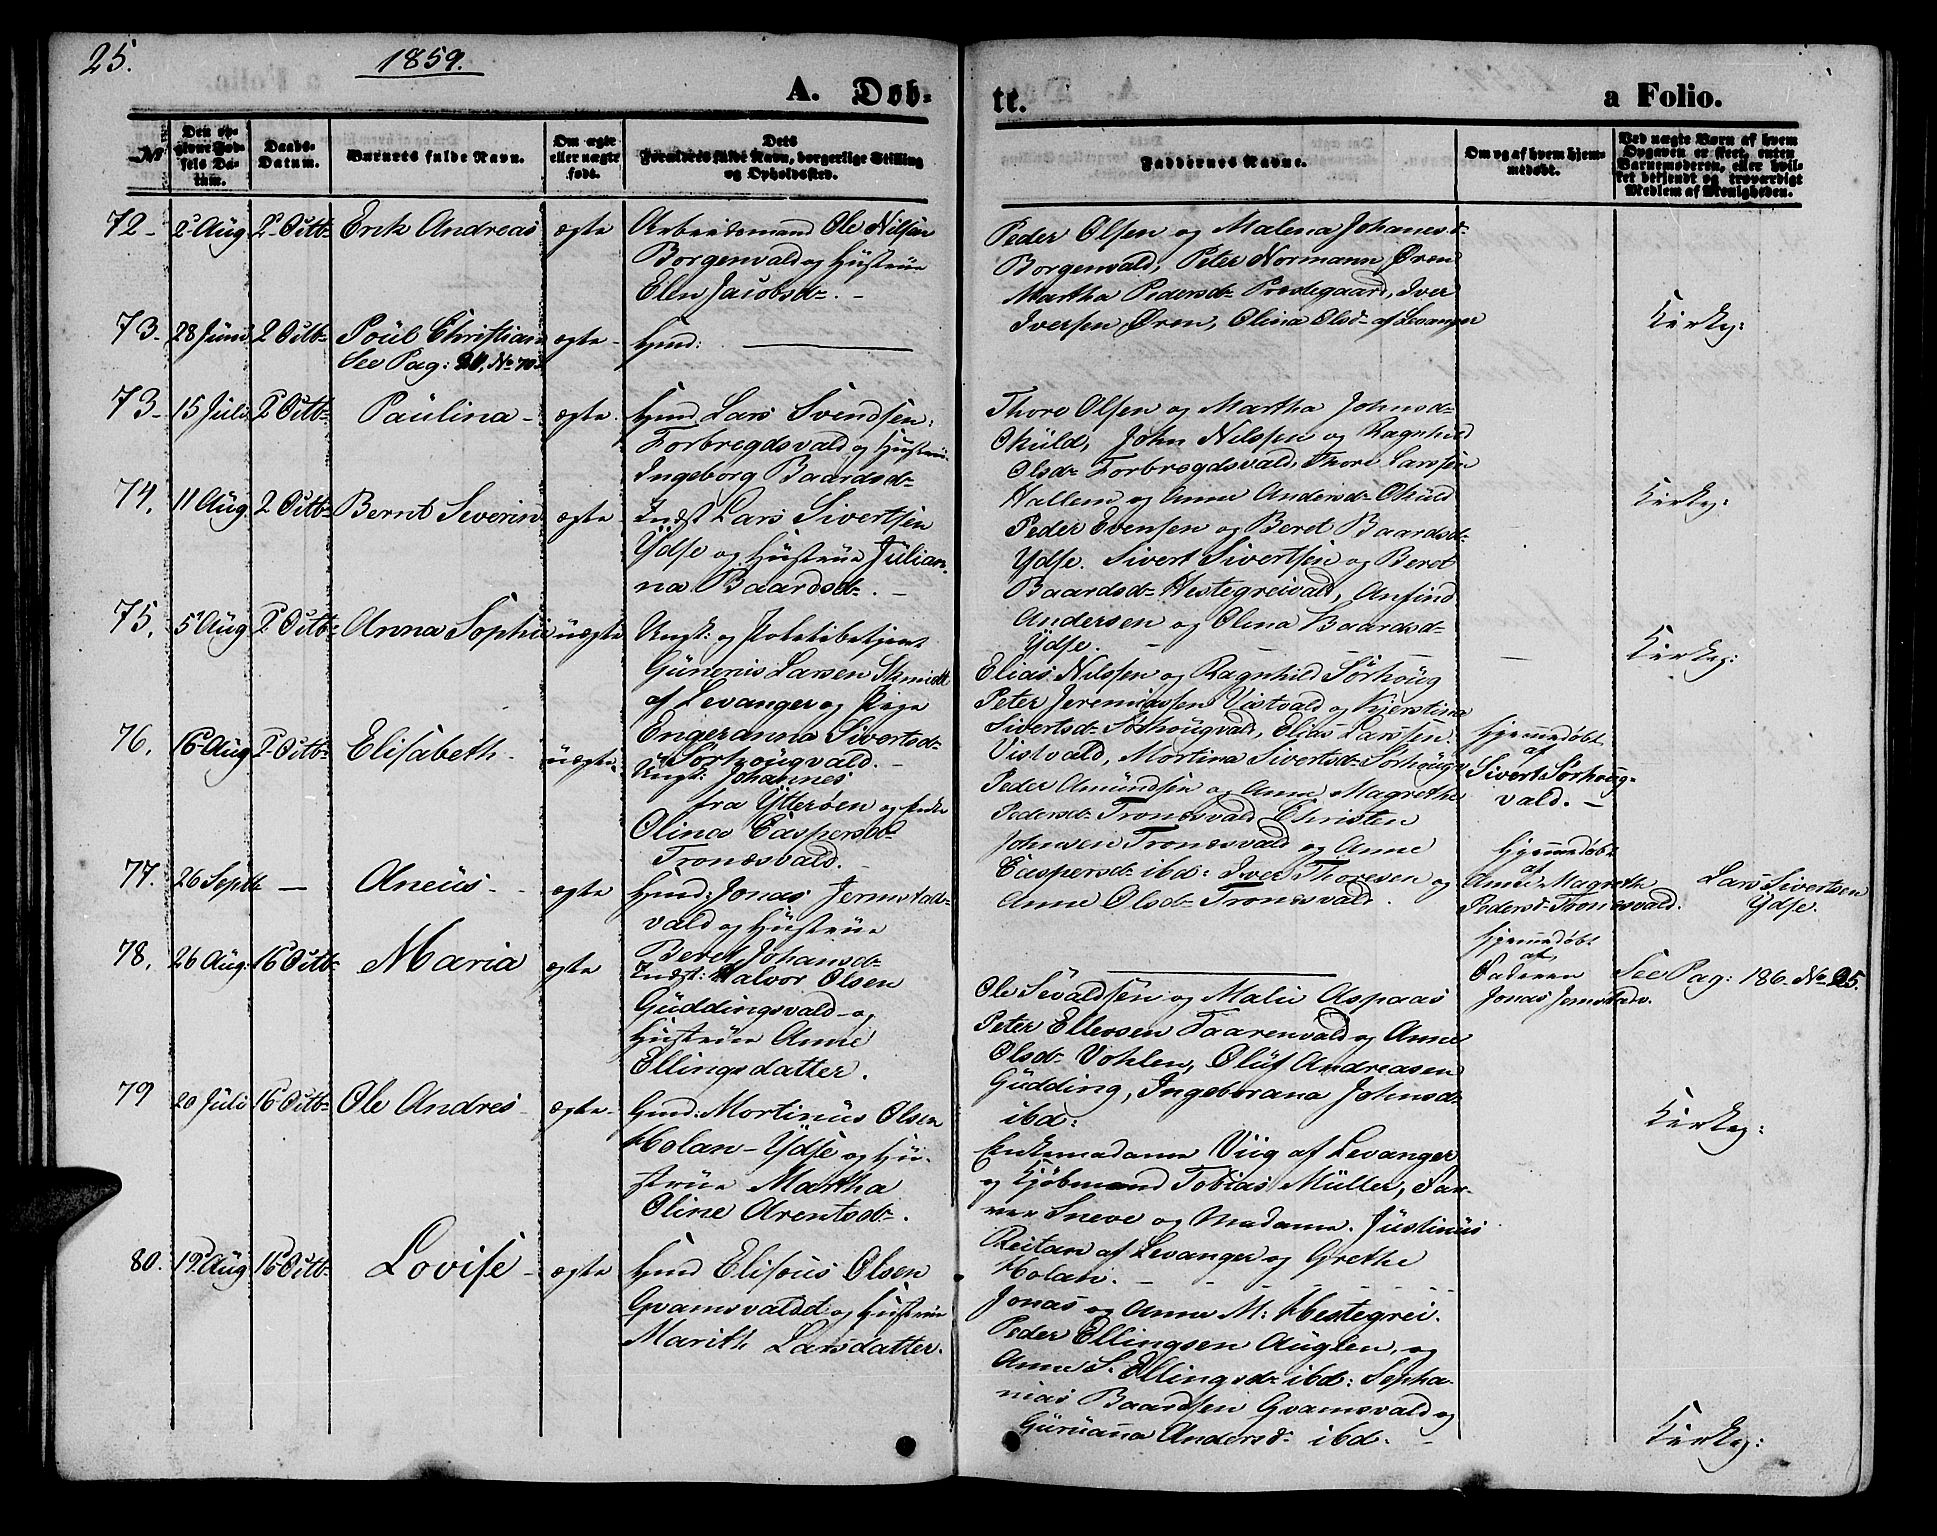 25.
1859.
A. Døb-
te.
a Folio.
No
Den op-
givne Fød-
sels Da-
tum.
Daabs-
Datum.
Barnets fulde Navn.
Om ægte
eller uægte
født.
Dets
Forældres fulde Navn, borgerlige Stilling
og Opholdssted.
Faddernes Navne.
Om og af hvem hjem-
medøbt.
Ved uægte Børn af hvem
Opgaven er skeet, enten
Barnemoderen, eller hvil-
ket bekjendt og troværdigt
Medlem af Menigheden.
72- 2 Aug 2 Octb- Erik Andreas ægte
Arbeidsmand Ole Nilsen
Borgenvald og Hustrue
Elen Jacobsd-. -
Peder Olsen og Malena Johanesd-
Borgenvald, Peter Normann Øren
Martha Pedersd- Prestegaard, Iver
Iversen Øren, Olina Olsd- af Levanger
Kirkeg:
73- 28 Juni 2 Octb- Poul Christian ægte- Hmd:
See Pag: 20, No 70.
73- 15 Juli 2 Octb- Paulina- ægte
Hmd Lars Svendsen,
Forbregdsvald og Hustrue
Ingeborg Baardsd-
Thore Olsen og Martha Johnsd-
Okuld, John Nilssen og Ragnhild
Olsd- Forbregdsvald, Thore Larssen
Hallem og Anne Andersd- Okuld
Kirkeg:
74. 11 Aug. 2 Octb- Bernt Severin ægte-
Indst Lars Sivertsen
Ydse og Hustrue Julian-
na Baardsd-. -
Peder Evensen og Beret Baardsd-
Ydse. Sivert Sivertsen og Beret
Baardsd- Hestegreivald, Anfind
Andersen og Olina Baardsd-
Ydse. -
Kirkeg:
75. 5 Aug 2 Octb- Anna Sophie uægte
Ungk: og Politibetjent
Gunerius Larsen Schmidt
af Levanger og Pige
Engeranna Sivertsd-
Sørhougvald. -
Elias Nilssen og Ragnhild Sørhoug
Peter Jeremiassen Vistvald og Kjerstina
Sivertsd- Sørhougvald, Elias Larssen
Vistvald, Mortina Sivertsd- Sørhougv
Hjemmedøbt
af
Sivert Sørhoug-
vald. -
76. 16 Aug 2 Octb- Elisabeth- uægte
Ungk: Johannes
fra Ytterøen og Enke
Olina Caspersd-
Tronesvald.
Peder Amundsen og Anne Magrethe
Pedersd- Tronesvald Christen
Johnsen Tronesvald og Anne
Caspersd- ibd- Iver Thoresen og
Anne Olsd- Tronesvald.
Hjemmedøbt
af
Anne Magrethe
Pedersd- Tronesvald.
Lars Sivertsen
Ydse.
77. 26 Septb - Aneus- - ægte
Hmd: Jonas Jermstad-
vald og Hustrue
Beret Johansd-
Hjemmedøbt
af
Faderen
Jonas Jermstadv.
See Pag: 186 No 25.
78. 26 Aug: 16 Octb- Maria ægte
Indst: Halvor Olsen
Guddingsvald og
Hustrue Anne
Ellingsdatter.
Ole Sevaldsen og Malie Aspaas
Peter Ellevsen Faarenvald og Anne
Olsd- Vohlen, Oluf Andreasen
Gudding, Ingeborana Johnsd-
ibd:
Kirkeg:
79 20 Juli 16 Octb- Ole Andres- ægte-
Gmd: Mortinus Olsen
Holan-Ydse og Hu-
strue Martha
Oline Arentsd-.
Enkemadame Viig af Levanger
og Kjøbmand Tobias Müller, Far-
ver Sneve og Madame. Justinus
Reitan af Levanger og Grethe
Holan. -
80. 19 Aug 16 Octb- Lovise - ægte
Hmd Eliseus Olsen
Gvamsvaldet og Hustrue
Marith Larsdatter.
Jonas og Anne M: Hestegrei.
Peder Ellingsen Auglen, og
Anne S. Ellingsd- ibd: Sepha-
nias Baardsen Gvamsvald og
Guruanna Andersd- ibd. -
Kirkeg: